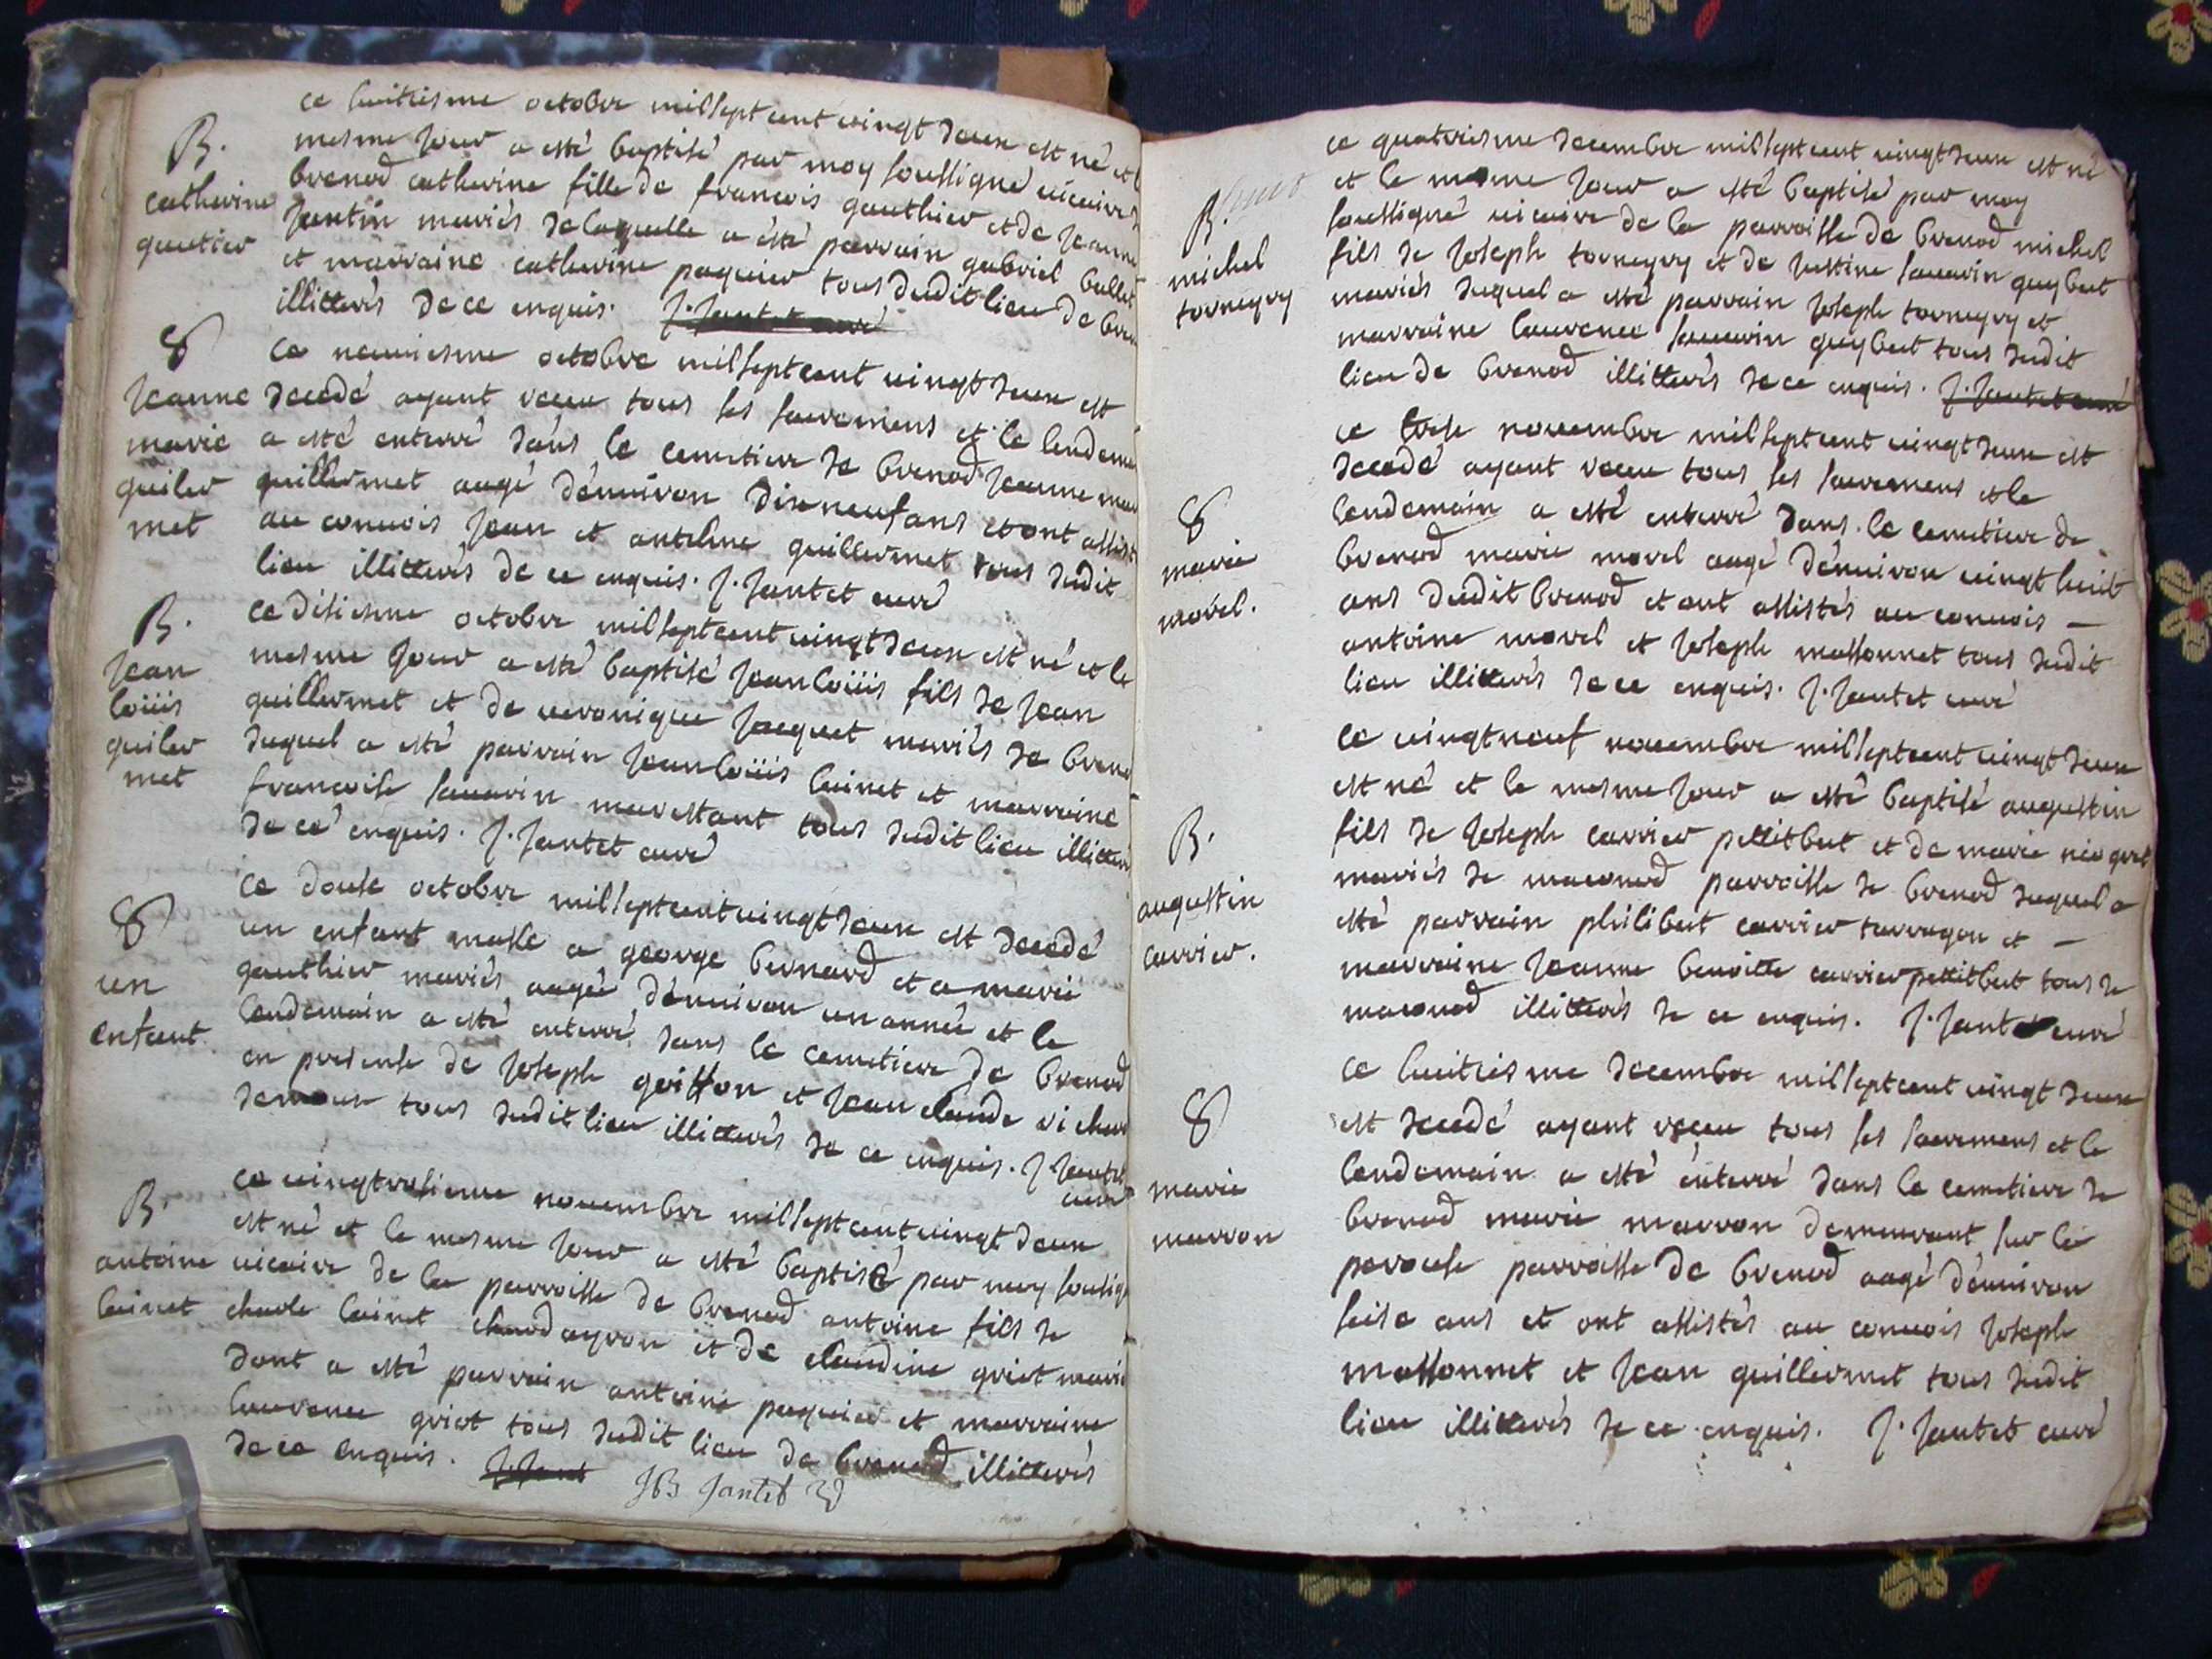 ce huitiesme octobre milsept cent vingt deux est né et l
mesme jour a esté baptisé par moy soussigné vicaire d
brenod catherine fille de francois gauthier et de jeanne
jantin mariés de laquelle a esté parrain gabriel ballet
et marraine catherine paquier tous dudit lieu de bren
illitterés de ce enquis. J. Jantet curé
B.
catherine
gautier
ce neuviesme octobre milsept cent vingt deux est
decedé ayant receu tous ses sacremens et le lendema
a esté enterré dans le cemetiere de brenod jeanne mar
guillermet aagé d'environ dix neuf ans et ont assist
au convois jean et antelme guillermet tous dudit
lieu illitterés de ce enquis. J. Jantet curé
S
jeanne
marie
guiler
met
ce disiesme octobre milsept cent vingt deux est né et le
mesme jour a esté baptisé jean loüis fils de jean
guillermet et de veronique jacquet mariés de breno
duquel a esté parrain jean loüis luinet et marraine
francoise savarin marestant tous dudit lieu illitteré
de ce enquis. J. Jantet curé
B.
jean
loüis
guiler
met
ce douse octobre milsept cent vingt deux est decedé
un enfant masle a george bernard et a marie
gauthier mariés aagé d'environ un année et le
lendemain a esté enterré dans le cemetiere de brenod
en presense de joseph goiffon et jean claude
tous dudit lieu illitterés de ce enquis. J. Jantet
curé
S
un
enfant
ce vingt troisiesme novembre milsept cent vingt deux
est né et le mesme jour a esté baptisé par moy sousig
vicaire de la parroisse de brenod antoine fils de
charle luinet et de claudine griot marié
dont a esté parrain antoine paquier et marraine
laurence griot tous dudit lieu de brenod illitterés
de ce enquis. J. Jant JB Jantet
B.
antoine
luinet
ce quatriesme decembre milsept cent vingt deux est né
et le mesme jour a esté baptisé par moy
soussigné vicaire de la parroisse de brenod michel
fils de joseph torneyry et de justine savarin guybet
mariés duquel a esté parrain joseph torneyry et
marraine laurence savarin guybet tous dudit
lieu de brenod illitterés de ce enquis. J. Jantet curé
B.
michel
torneyry
ce trese novembre milsept cent vingt deux est
decedé ayant receu tous ses sacremens et le
lendemain a esté enterré dans le cemetiere de
brenod marie morel aagé d'environ vingt huit
ans dudit brenod et ont assistés au convois —
antoine morel et joseph massonnet tous dudit
lieu illitterés de ce enquis. J. Jantet curé
S
marie
morel.
ce vingt neuf novembre milsept cent vingt deux
est né et le mesme jour a esté baptisé augustin
fils de joseph carrier pettitbut et de marie
mariés de maconod parroisse de brenod duquel a
esté parrain philibert carrier tarragon et —
marraine jeanne benoitte carrier pettitbut tous de
maconod illitterés de ce enquis. J. Jantet curé
B.
augustin
carrier.
ce huitiesme decembre milsept cent vingt deux
est decedé ayant receu tous ses sacremens et le
lendemain a esté enterré dans le cemetiere de
brenod marie marron demeurant sur la
parroisse de brenod aagé d'environ
seise ans et ont assistés au convois joseph
massonnet et jean guillermet tous dudit
lieu illitterés de ce enquis. J. Jantet curé
S
marie
marron